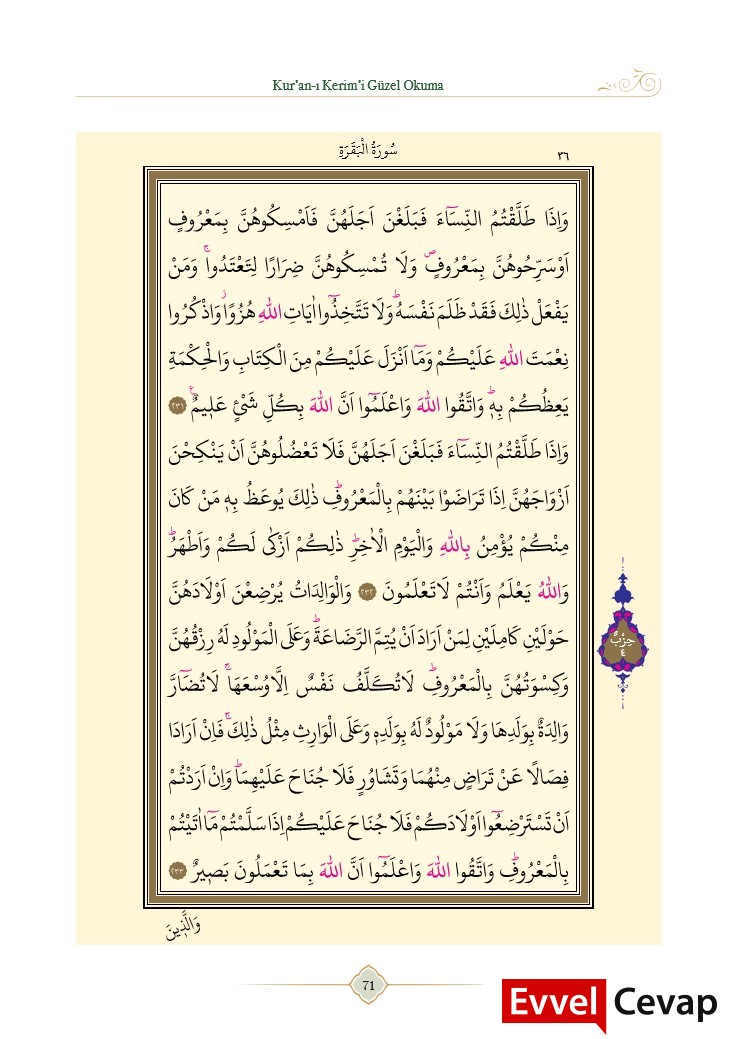 Kur'an-ı Kerim'i Güzel Okuma
٣٦
سُورَةُ الْبَقَرَةِ
وَاِذَا طَلَّقْتُمُ النِّسَٓاءَ فَبَلَغْنَ اَجَلَهُنَّ فَاَمْسِكُوهُنَّ بِمَعْرُوفٍ
اَوْسَرِّحُوهُنَّ بِمَعْرُوفٍۖ وَلَا تُمْسِكُوهُنَّ ضِرَارًا لِتَعْتَدُواۚ وَمَنْ
يَفْعَلْ ذٰلِكَ فَقَدْ ظَلَمَ نَفْسَهُۜ وَلَا تَتَّخِذُٓوا اٰيَاتِ اللّٰهِ هُزُوًاۘ وَاذْكُرُوا
نِعْمَتَ اللّٰهِ عَلَيْكُمْ وَمَٓا اَنْزَلَ عَلَيْكُمْ مِنَ الْكِتَابِ وَالْحِكْمَةِ
يَعِظُكُمْ بِه۪ۜ وَاتَّقُوا اللّٰهَ وَاعْلَمُٓوا اَنَّ اللّٰهَ بِكُلِّ شَيْءٍ عَل۪يمٌ۟ ﴿٢٣١﴾
وَاِذَا طَلَّقْتُمُ النِّسَٓاءَ فَبَلَغْنَ اَجَلَهُنَّ فَلَا تَعْضُلُوهُنَّ اَنْ يَنْكِحْنَ
اَزْوَاجَهُنَّ اِذَا تَرَاضَوْا بَيْنَهُمْ بِالْمَعْرُوفِۜ ذٰلِكَ يُوعَظُ بِه۪ مَنْ كَانَ
مِنْكُمْ يُؤْمِنُ بِاللّٰهِ وَالْيَوْمِ الْاٰخِرِۜ ذٰلِكُمْ اَزْكٰى لَكُمْ وَاَطْهَرُۜ
وَاللّٰهُ يَعْلَمُ وَاَنْتُمْ لَا تَعْلَمُونَ ﴿٢٣٢﴾ وَالْوَالِدَاتُ يُرْضِعْنَ اَوْلَادَهُنَّ
حَوْلَيْنِ كَامِلَيْنِ لِمَنْ اَرَادَ اَنْ يُتِمَّ الرَّضَاعَةَۜ وَعَلَى الْمَوْلُودِ لَهُ رِزْقُهُنَّ
وَكِسْوَتُهُنَّ بِالْمَعْرُوفِۜ لَا تُكَلَّفُ نَفْسٌ اِلَّا وُسْعَهَاۚ لَا تُضَٓارَّ
وَالِدَةٌ بِوَلَدِهَا وَلَا مَوْلُودٌ لَهُ بِوَلَدِه۪ وَعَلَى الْوَارِثِ مِثْلُ ذٰلِكَۚ فَاِنْ اَرَادَا
فِصَالًا عَنْ تَرَاضٍ مِنْهُمَا وَتَشَاوُرٍ فَلَا جُنَاحَ عَلَيْهِمَاۜ وَاِنْ اَرَدْتُمْ
اَنْ تَسْتَرْضِعُٓوا اَوْلَادَكُمْ فَلَا جُنَاحَ عَلَيْكُمْ اِذَا سَلَّمْتُمْ مَٓا اٰتَيْتُمْ
بِالْمَعْرُوفِۜ وَاتَّقُوا اللّٰهَ وَاعْلَمُٓوا اَنَّ اللّٰهَ بِمَا تَعْمَلُونَ بَص۪يرٌ ﴿٢٣٣﴾
حِزْبٌ
٤
وَالَّذ۪ينَ
71
Evvel Cevap